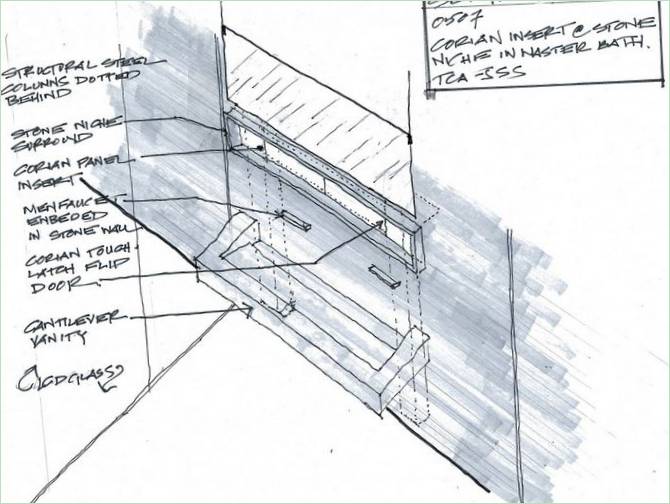 STRUCTURAL STEEL
COLUMNS DOTTED
BEHIND
STONE NICHE
SURROUND
CORIAN PANEL
INSERT
MEM FAUCET
EMBEDED
IN STONE WALL
CORIAN TOUCH-
LATCH FLIP
DOOR.
CANTILEVER
VANITY
0507
CORIAN INSERT @ STONE
NICHE IN MASTER BATH.
TCA-JSS